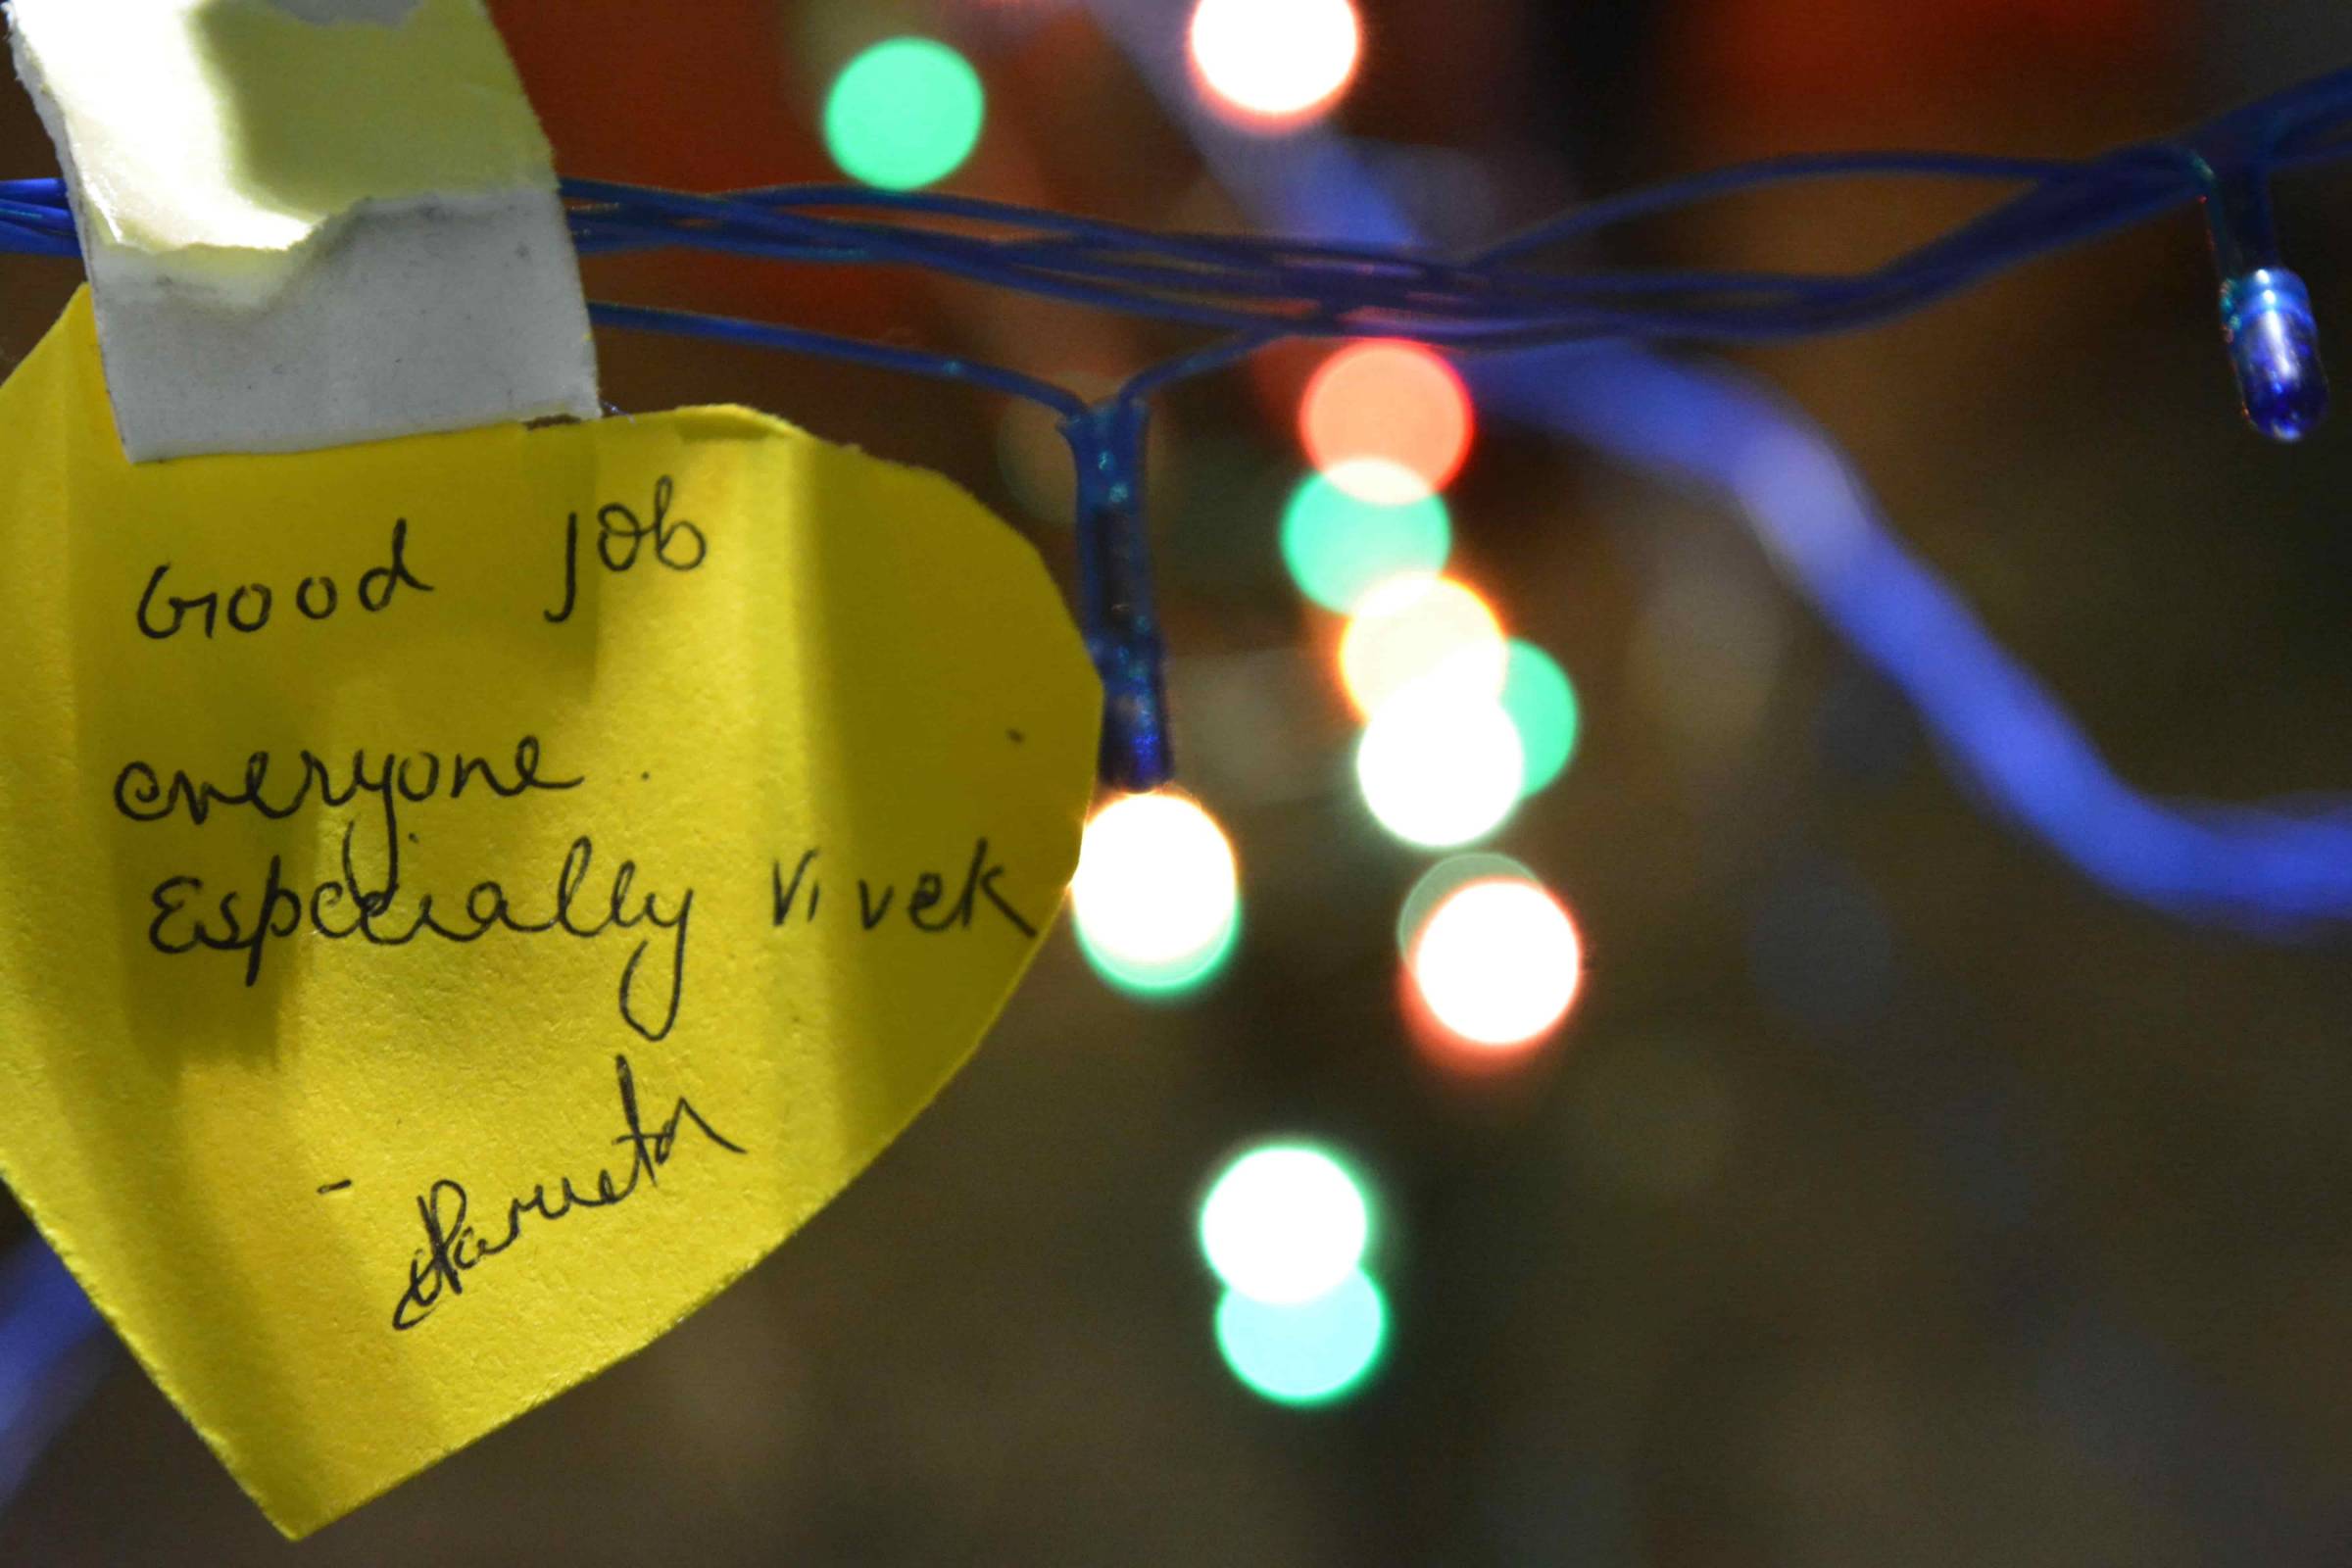 Good job
everyone.
Especially Vivek
-